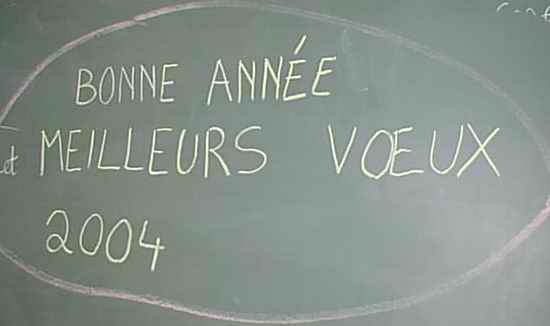 BONNE ANNÉE
et MEILLEURS VŒUX
2004